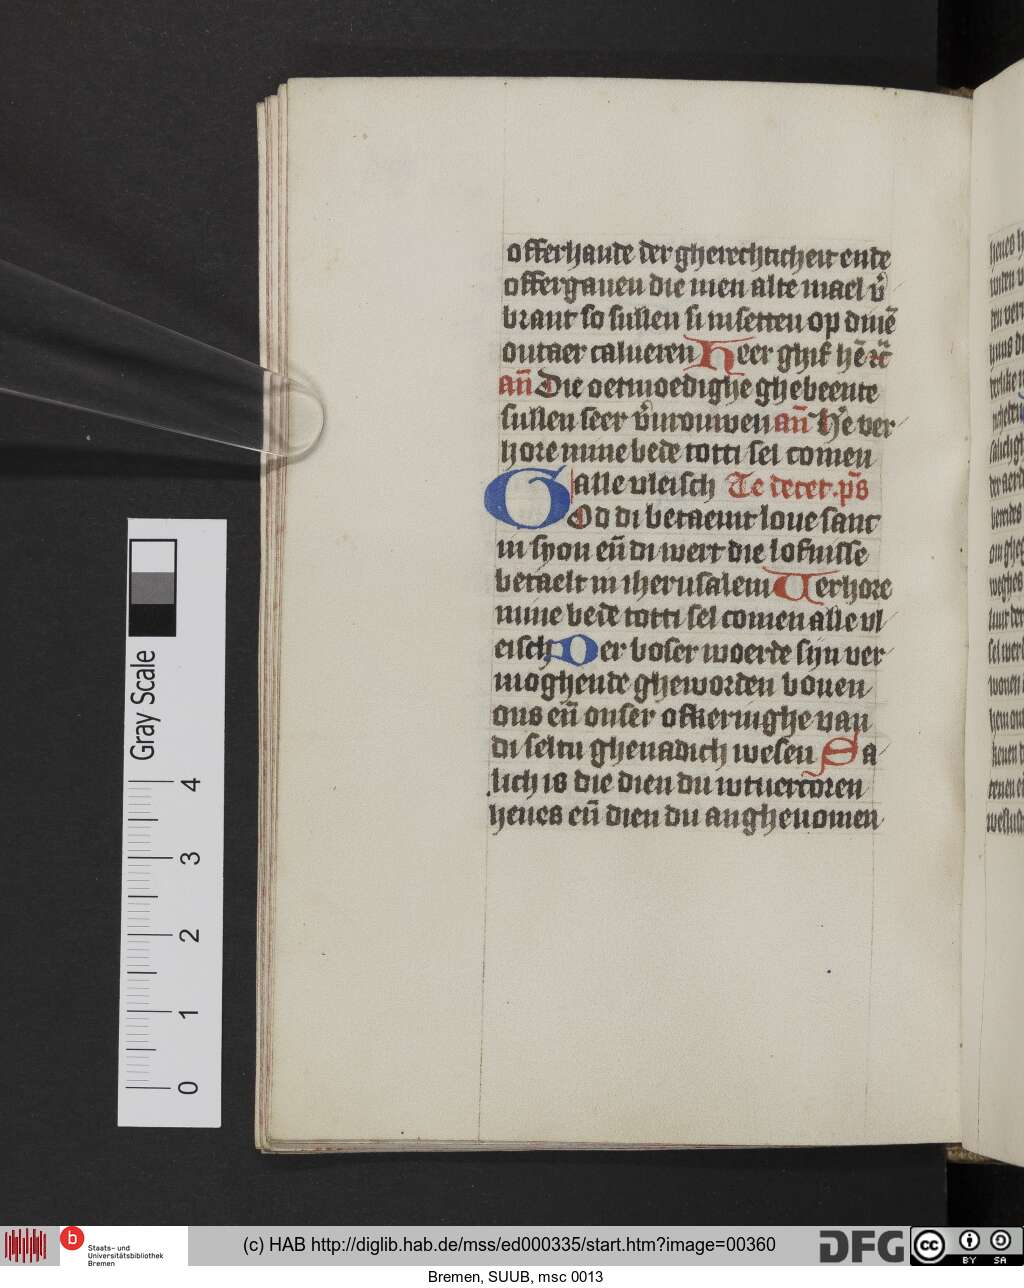 offerhande der gherechticheit ende
offergauen die men alte mael v̾
brant so sullen si insetten op dinē
outaer calueren Heer ghif hē rc̄
an̄ Die oetmoedighe ghebeente
sullen seer v̾urouwen an̄ He ver
hore mine bede totti sel comen
alle uleisch Te decet. ps̄
God di betaemt loue sanc
in syon en̄ di wert die lofnisse
betaelt in iherusalem Uerhore
mine bede totti sel comen alle vl
eisch Der boser woerde sijn ver
moghende gheworden bouen
ons en̄ onser offeringhe van
di seltu ghenadich wesen Sa
lich is die dien du wtuercoren
heues en̄ dien du anghenomen
Gray Scale
4
3
2
1
0
b
Staats- und
Universitätsbibliothek
Bremen
(c) HAB http://diglib.hab.de/mss/ed000335/start.htm?image=00360
DFG
cc
BY SA
Bremen, SUUB, msc 0013